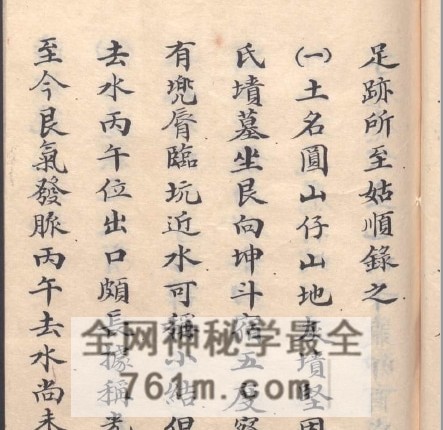 足跡所至姑順錄之
㈠土名圓山仔山地墳堅
氏墳墓坐艮向坤斗宿五度
有兜脣臨坑近水可稱小結但
去水丙午位出口頗長據稱
至今艮氣發脈丙午去水尚未
全网神秘学最全
761m.com